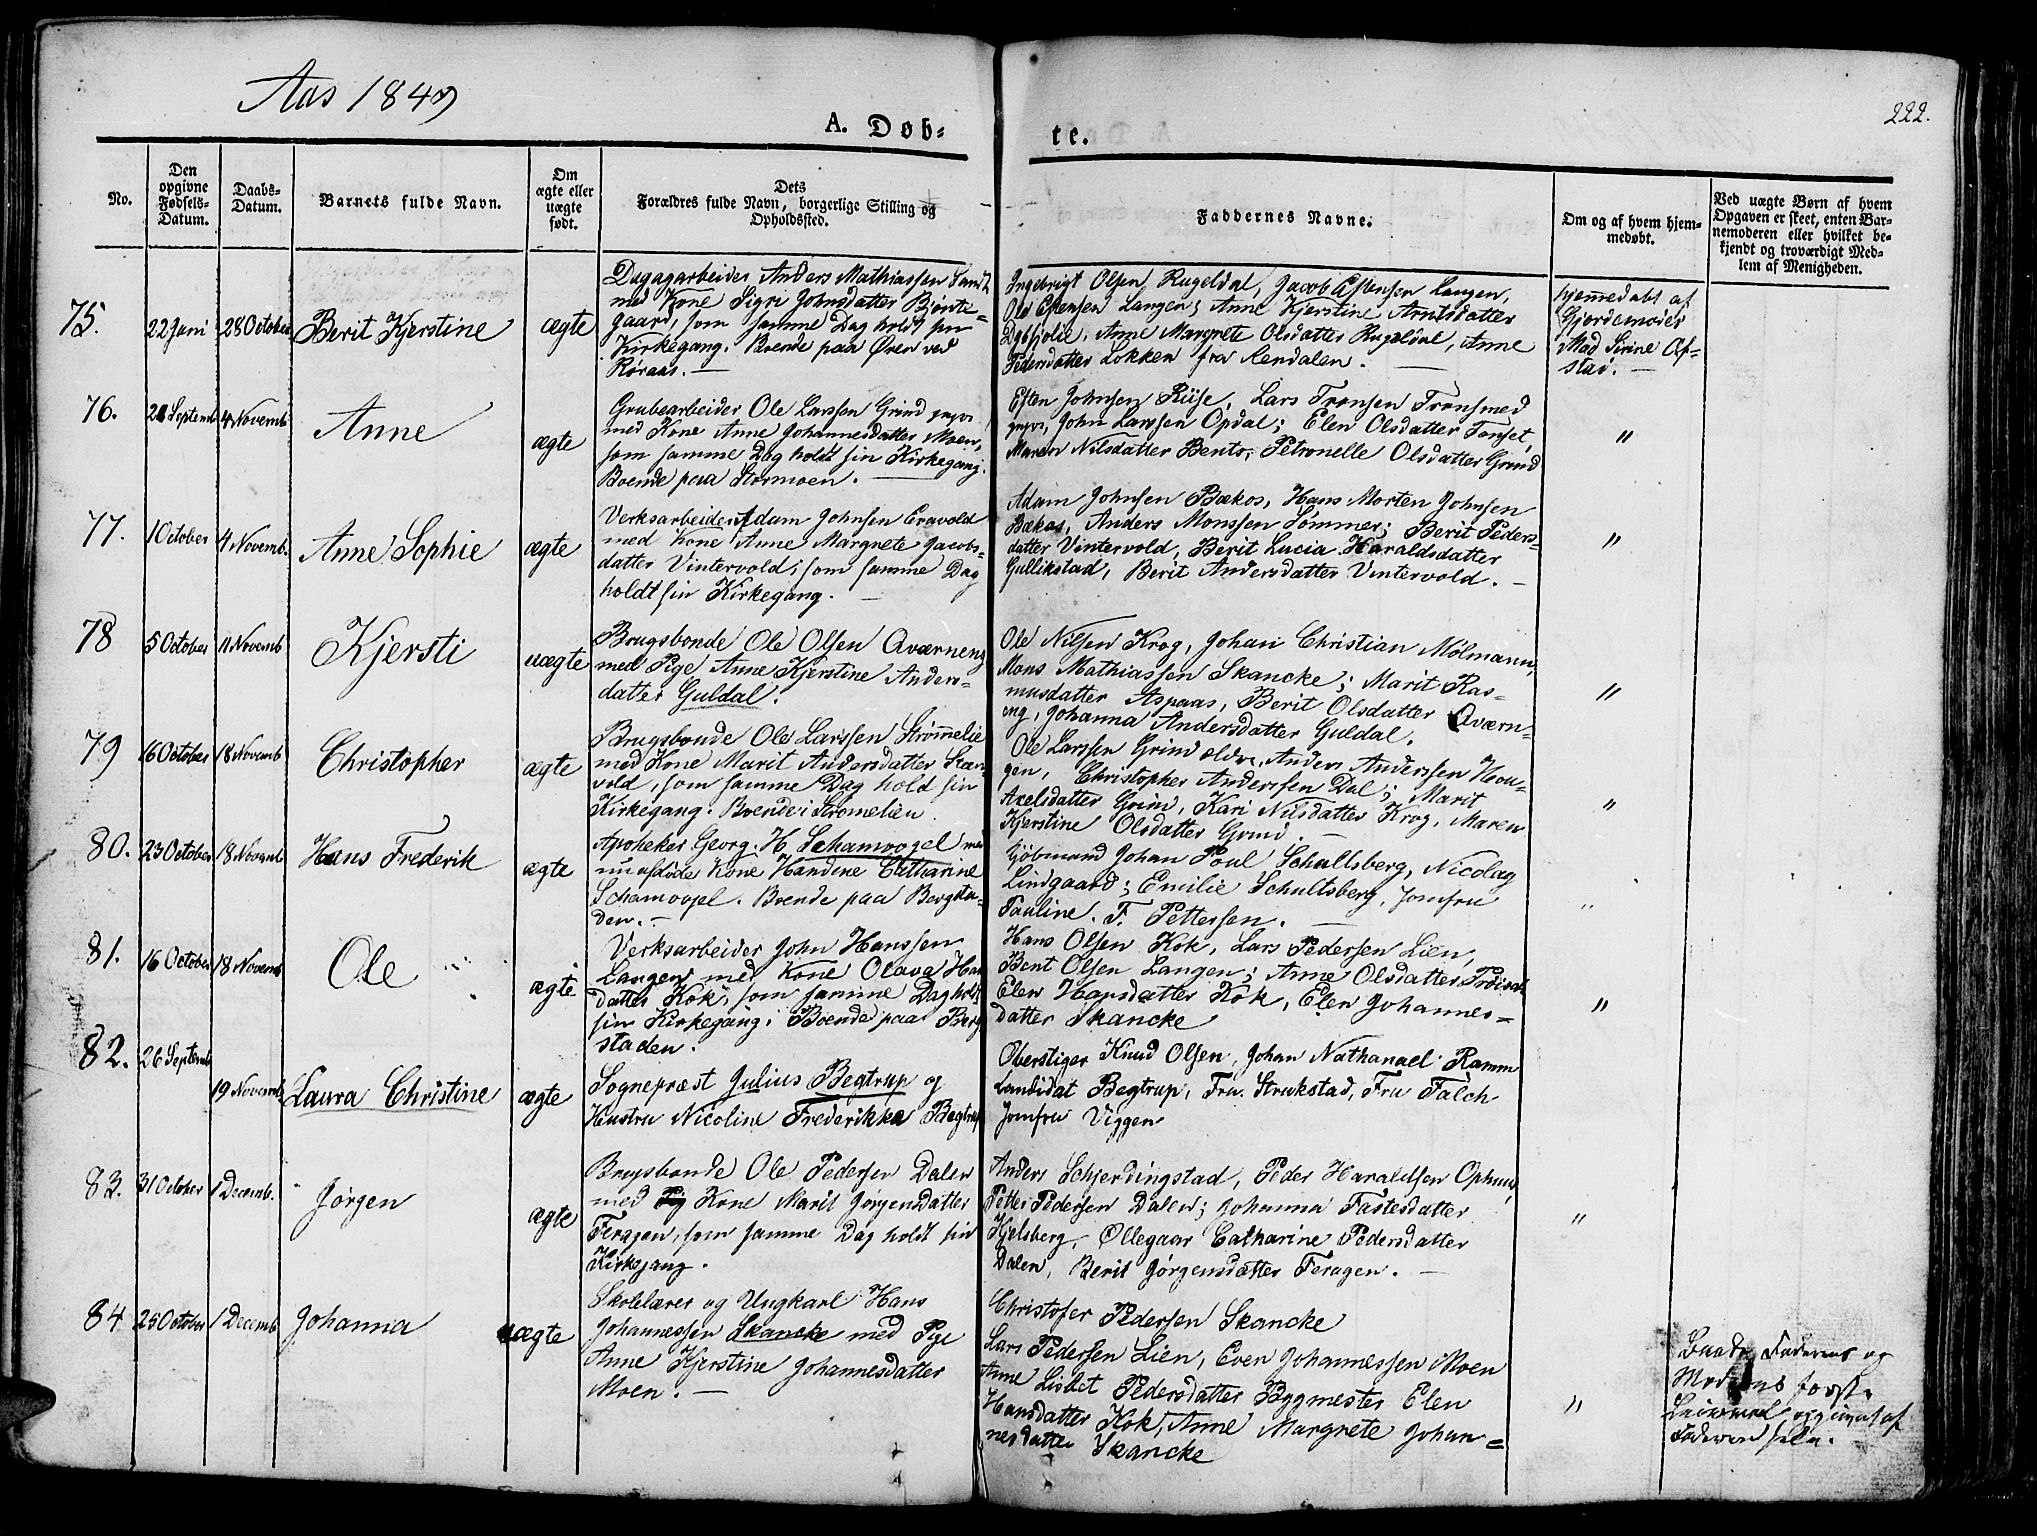 Aas 1849
222.
A. Døb=
te.
No.
Den opgivne Fødsels-Datum.
Daabs-Datum.
Barnets fulde Navn.
Om ægte eller uægte født.
Dets Forældres fulde Navn, borgerlige Stilling og Opholdsted.
Faddernes Navne.
Om og af hvem hjem-
medøbt.
Ved uægte Børn af hvem
Opgaven er skeet, enten Bar-
nemoderen eller hvilket be-
kjendt og troværdigt Med-
lem af Menigheden.
75. 22 Juni 28 October Berit Kjerstine ægte
Dagagarbeider Anders Mathiassen
med Kone Sigri Johnsdatter Bjørste=
gaard, som samme Dag holdt sin
Kirkegang. Boende paa Øren ved
Røraas. —
Ingebrigt Olsen Rugeldal, Jacob Estensen Langen,
Ole Langen; Anne Kjerstine Arntsdatter
Anne Margrete Olsdatter Rugeldal, Anne
Pedersdatter Løkken fra Rendalen. —
hjemmedøbt af
Gjordemoder
Mad Sirine Af=
stad. —
76. 4 Novemb Anne ægte
Grubearbeider Ole Larssen Grind yngre
med Kone Anne Johannesdatter Moen,
som samme Dag holdt sin Kirkegang.
Boende paa Stormoen. —
Esten Johnsen Riise, Lars Tronsen Tronsmed
yngre, John Larssen Opdal; Elen Olsdatter Tonset,
Maren Nilsdatter Bento, Petronelle Olsdatter Grind
"
77. 1 October 4 Novemb. Anne Sophie ægte
Verksarbeider Adam Johnsen Evavold
med Kone Anne Margrete Jacobs=
datter Vintervold; som samme Dag
holdt sin Kirkegang. —
Adam Johnsen Bækos, Hans Morten Johnsen
Bækos, Anders Monssen Sømmer; Berit Peders=
datter Vintervold, Berit Lucia Haraldsdatter
Gullikstad, Berit Andersdatter Vintervold. —
"
78 5 October 11 Novemb Kjersti uægte
Brugsbonde Ole Olsen Qværneng
med Pige Anne Kjerstine Anders=
datter Guldal.
Ole Nilsen Krog, Johan Christian Mølmann,
Mons Mathiassen Skancke; Marit Ras=
musdatter Aspaas, Berit Olsdatter Qværn=
eng, Johanna Andersdatter Guldal.
"
79 6 October 18 Novemb Christopher ægte
Brugsbonde Ole Larssen Strømelie
med Kone Marit Andersdatter
vold, som samme Dag hold sin
Kirkegang. Boende i Strømelien.
Ole Larssen Grind ældre, Anders Anderssen Hou=
gen, Christopher Anderssen Dal; Marit
Axelsdatter Grind, Kari Nilsdatter Krog, Maren
Kjerstine Olsdatter Grind. —
"
80. 23 October 18 Novemb Hans Frederik ægte
Apotheker Georg. H. Schamvogel med
nu afdøde Kone Handene Catharine
Schamvogel. Boende paa Bergsta=
den. —
Johan Poul Schultsberg, Nicolay
Lindgaard; Emilie Schultsberg, Jomfru
Pauline. F. Pettersen. —
"
81. 16 October 18 Novemb Ole ægte
Verksarbeider John Hanssen
Langen med Kone Olava Han
datter Kok, som samme Dag holdt
sin Kirkegang. Boende paa Berg
staden.
Hans Olsen Kok, Lars Pedersen Lien,
Bent Olsen Langen; Anne Olsdatter
Elen Hansdatter Kok, Elen Johannes=
datter Skancke
"
82. 26 Septemb 19 Novemb Laura Christine ægte
Sognepræst Julius Begtrup og
Hustru Nicoline Frederikke Begtrup
Oberstiger Knud Olsen, Johan Nathanael Ramm
Candidat Begtrup, Fru. Strukstad, Fru Falch
Jomfru Viggen
83. 31 October 1 Decemb. Jørgen ægte
Brugsbonde Ole Pedersen Dalen
med Kone Marit Jørgensdatter
Feragen, som samme Dag holdt sin
Kirkegang.
Anders Schjerdingstad, Peder Haraldsen Ophuus,
Petter Pedersen Dalen; Johanna Fastesdatter
Hjelsberg, Ollegaar Catharine Pedersdatter
Dalen, Berit Jørgensdatter Feragen. —
"
84 25 October 1 Decemb Johanna uægte
Skolelærer og Ungkarl Hans
Johannessen Skancke med Pige
Anne Kjerstine Johannesdatter
Moen. —
Christofer Pedersen Skancke
Lars Pedersen Lien, Even Johannessen Moen
Anne Lisbet Pedersdatter Bygmester Elen
Hansdatter Kok, Anne Margrete Johan=
nesdatter Skancke
"
Baade Faderens og
Moderens første
Leiermaal, opgivet af
Faderen selv.